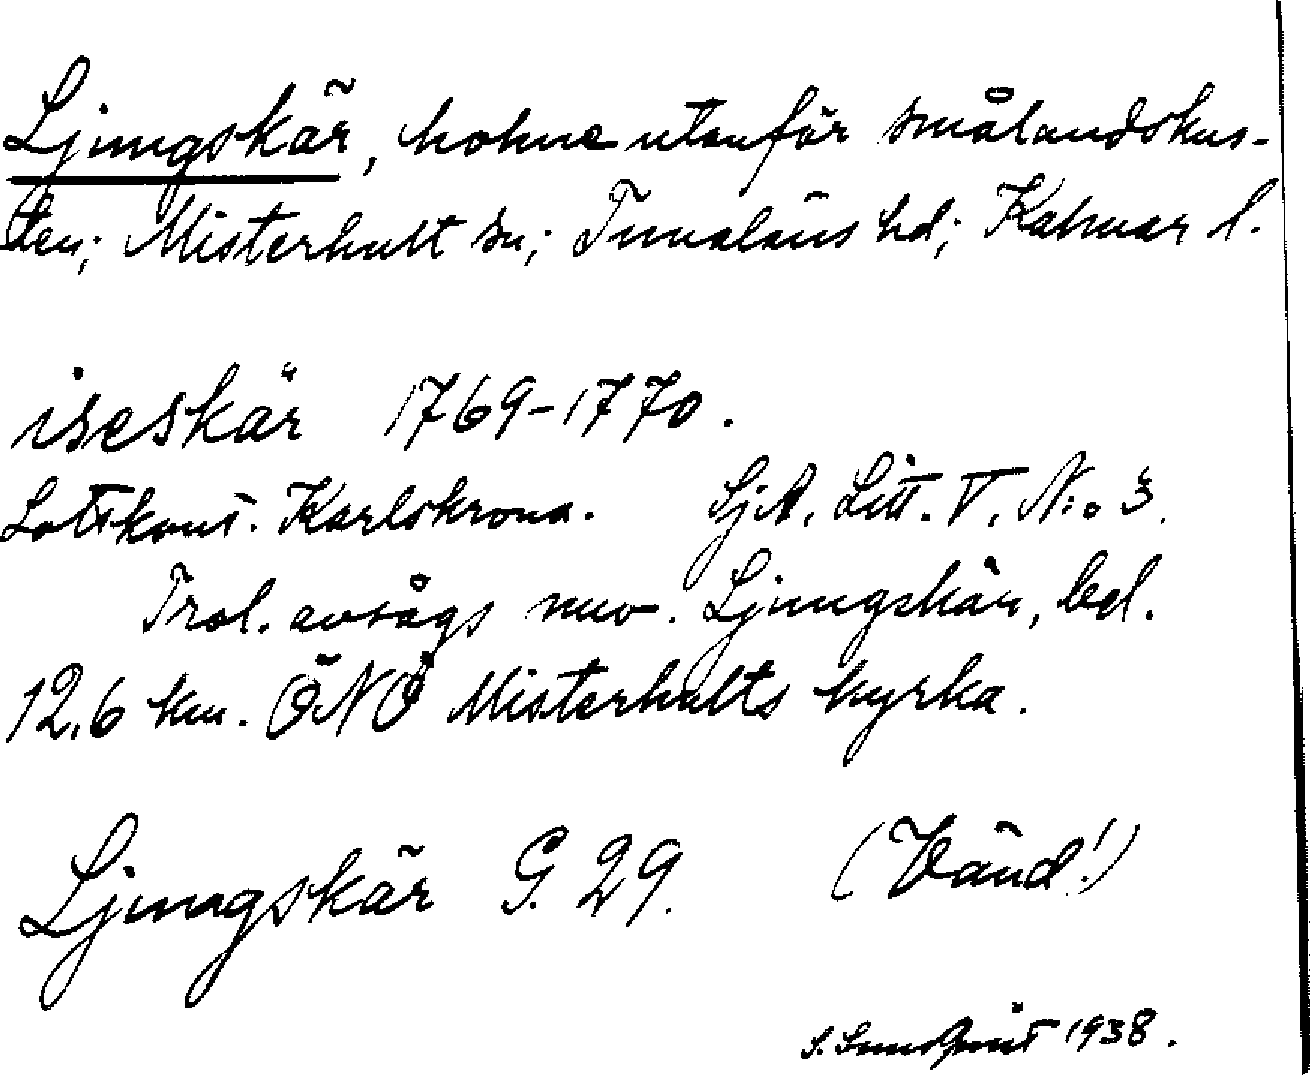 Ljungskär, holme utanför smålandskus-
ten; Misterhult sn; Tunaläns hd; Kalmar l.
iseskär 1769-1770.
Lotskont. Karlskrona. SjA. Litt. V. N:o 3.
Trol. avsågs nuv. Ljungskär, bel.
12,6 km. ÖNÖ Misterhults kyrka.
Ljungskär G. 29. (Vänd!)
S. Sundqvist 1938.